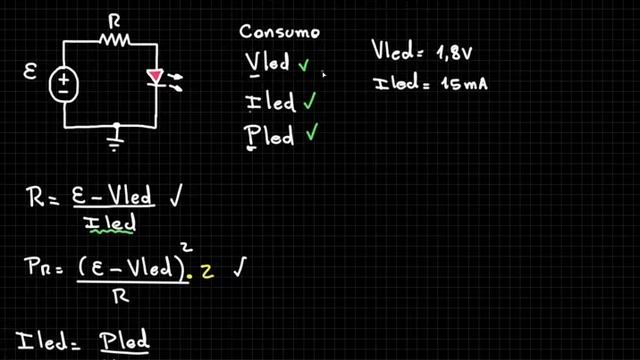 R
ε
Consumo
Vled ✓
Iled ✓
Pled ✓
Vled = 1,8V
Iled = 15mA
R = ε - Vled / Iled ✓
PR = (ε - Vled)² / R . 2 ✓
Iled = Pled